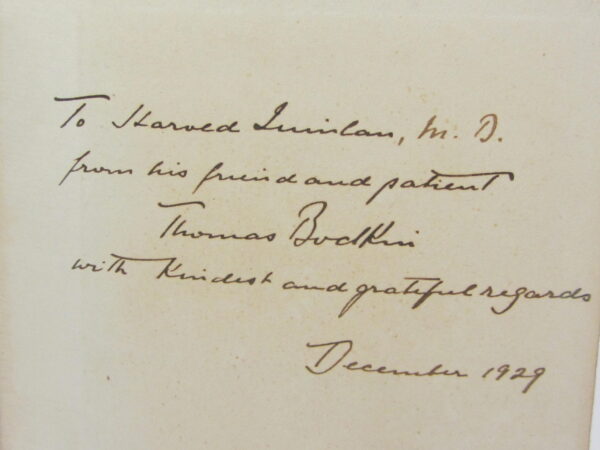 To Harold Quinlan, M. D.
from his friend and patient
Thomas Bodkin
with kindest and grateful regards
December 1929